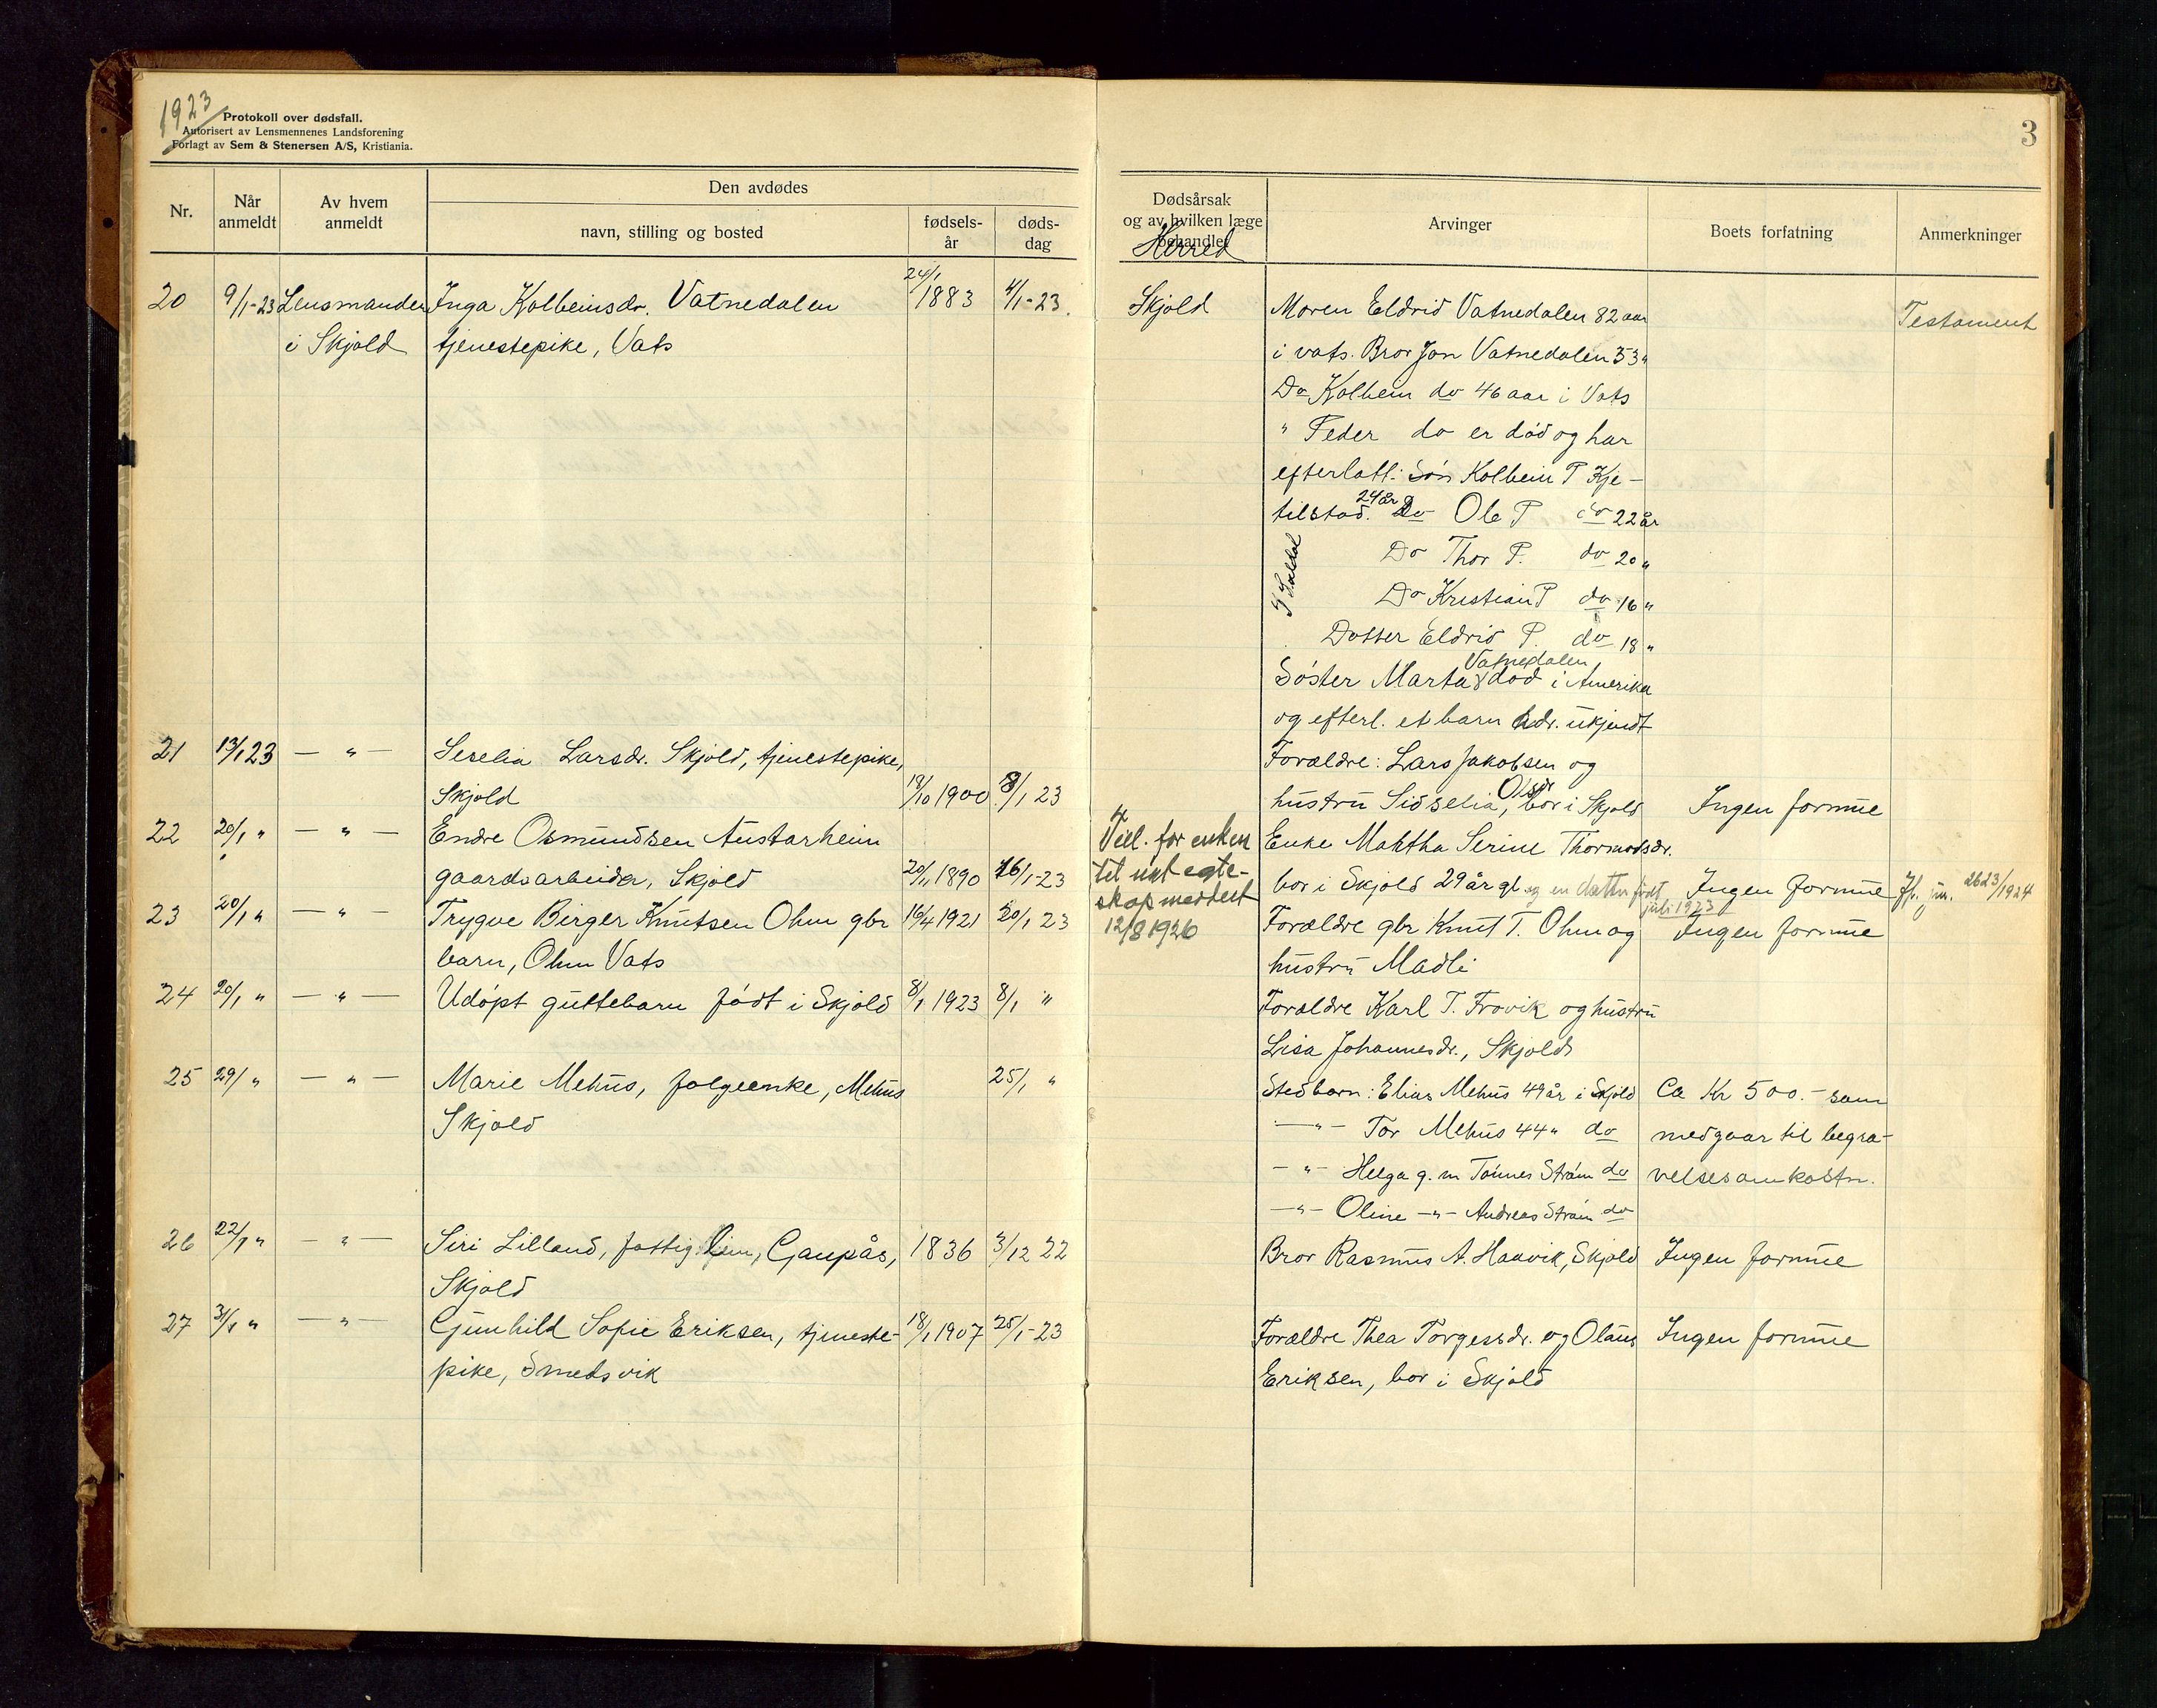 1923
Protokoll over dødsfall.
Autorisert av Lensmennenes Landsforening
Forlagt av Sem & Stenersen A/S, Kristiania.
3
Nr.
Når anmeldt
Av hvem anmeldt
Den avdødes
navn, stilling og bosted
fødsels-år
døds-dag
Dødsårsak
og av hvilken læge
behandlet
Herred
Arvinger
Boets forfatning
Anmerkninger
20 9/1-23 Lensmanden Inga Kolbeinsdr. Vatnedalen 24/1 1883 4/1-23. Skjold Moren Eldrid Vatnedalen 82 aar Testament
i Skjold tjenestepike, Vats i vats. Bror Jon Vatnedalen 53 "
Do Kolbein do 46 aar i Vats
" Peder do er död og har
efterlatt: Sön Kolbein P Kje-
tilstad. 24 år Do Ole P do 22 år
I Suldal Do Thor P. do 20 "
Do Kristian P do 16 "
Datter Eldrid P. do 18 "
Vatnedalen
Söster Marta död i Amerika
og efterl. et barn adr. ukjendt
21 13/1 23 — " — Seselia Larsdr. Skjold, tjenestepike, Forældre: Lars Jakobsen og
Skjold 19/10 1900 8/1 23 hustru Sidselia Olsdr, bor i Skjold Ingen formue
22 20/1 " — " — Endre Osmundsen Austarheim Enke Mahtha Serine Thormodsdr.
gaardsarbeider, Skjold 20/11 1890 16/1-23 bor i Skjold 29 år gl og en datter født juli 1923 Ingen formue Jfr. jnr. 2623/1924
Till. for enken
til nyt egte-
skap meddelt
12/8 1926
23 20/1 " — " — Trygve Birger Knutsen Ohm gbr 16/4 1921 20/1 23 Forældre gbr Knut T. Ohm og Ingen formue
barn, Ohm Vats hustru Madli
24 20/1 " — " — Udöpt guttebarn födt i Skjold 8/1 1923 8/1 " Forældre Karl T. Frovik og hustru
Lisa Johannesdr., Skjold
25 29/ " — " — Marie Mehus, folgeenke, Mehus 25/1 " Stedbarn: Elias Mehus 49 år i Skjold Ca Kr 500.- som
Skjold — " — Tor Mehus 44 " do medgaar til begra-
— " — Helga g. m Tönnes Ström do velsesomkostn.
— " — Oline — " — Andreas Ström do
26 22/1 " — " — Siri Lilland, fattig lem, Gaupås, 1836 3/12 22 Bror Rasmus A. Haavik, Skjold Ingen formue
Skjold
27 31/1 " — " — Gunhild Sofie Eriksen, tjeneste- 18/1 1907 25/1-23 Forældre Thea Torgersdr. og Olaus Ingen formue
pike, Smedsvik Eriksen, bor i Skjold